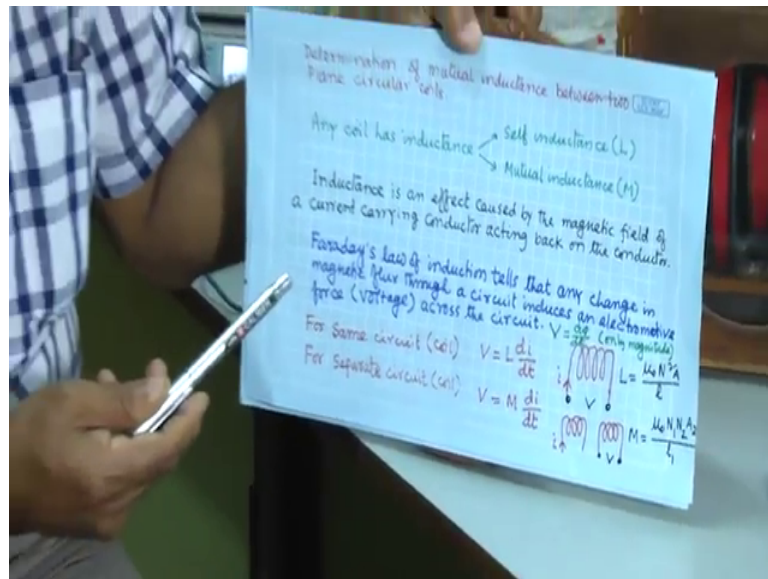 Determination of mutual inductance between two
Plane circular coils.
Any coil has inductance
Self inductance (L)
Mutual inductance (M)
Inductance is an effect caused by the magnetic field of
a current carrying conductor acting back on the conductor.
Faraday's law of induction tells that any change in
magnetic flux through a circuit induces an electromotive
force (voltage) across the circuit. V = dφ/dt (only magnitude)
For same circuit (coil) V = L di/dt
i V L = μ₀N²A/l
For separate circuit (coil) V = M di/dt
i V M = μ₀N₁N₂A₂/l₁